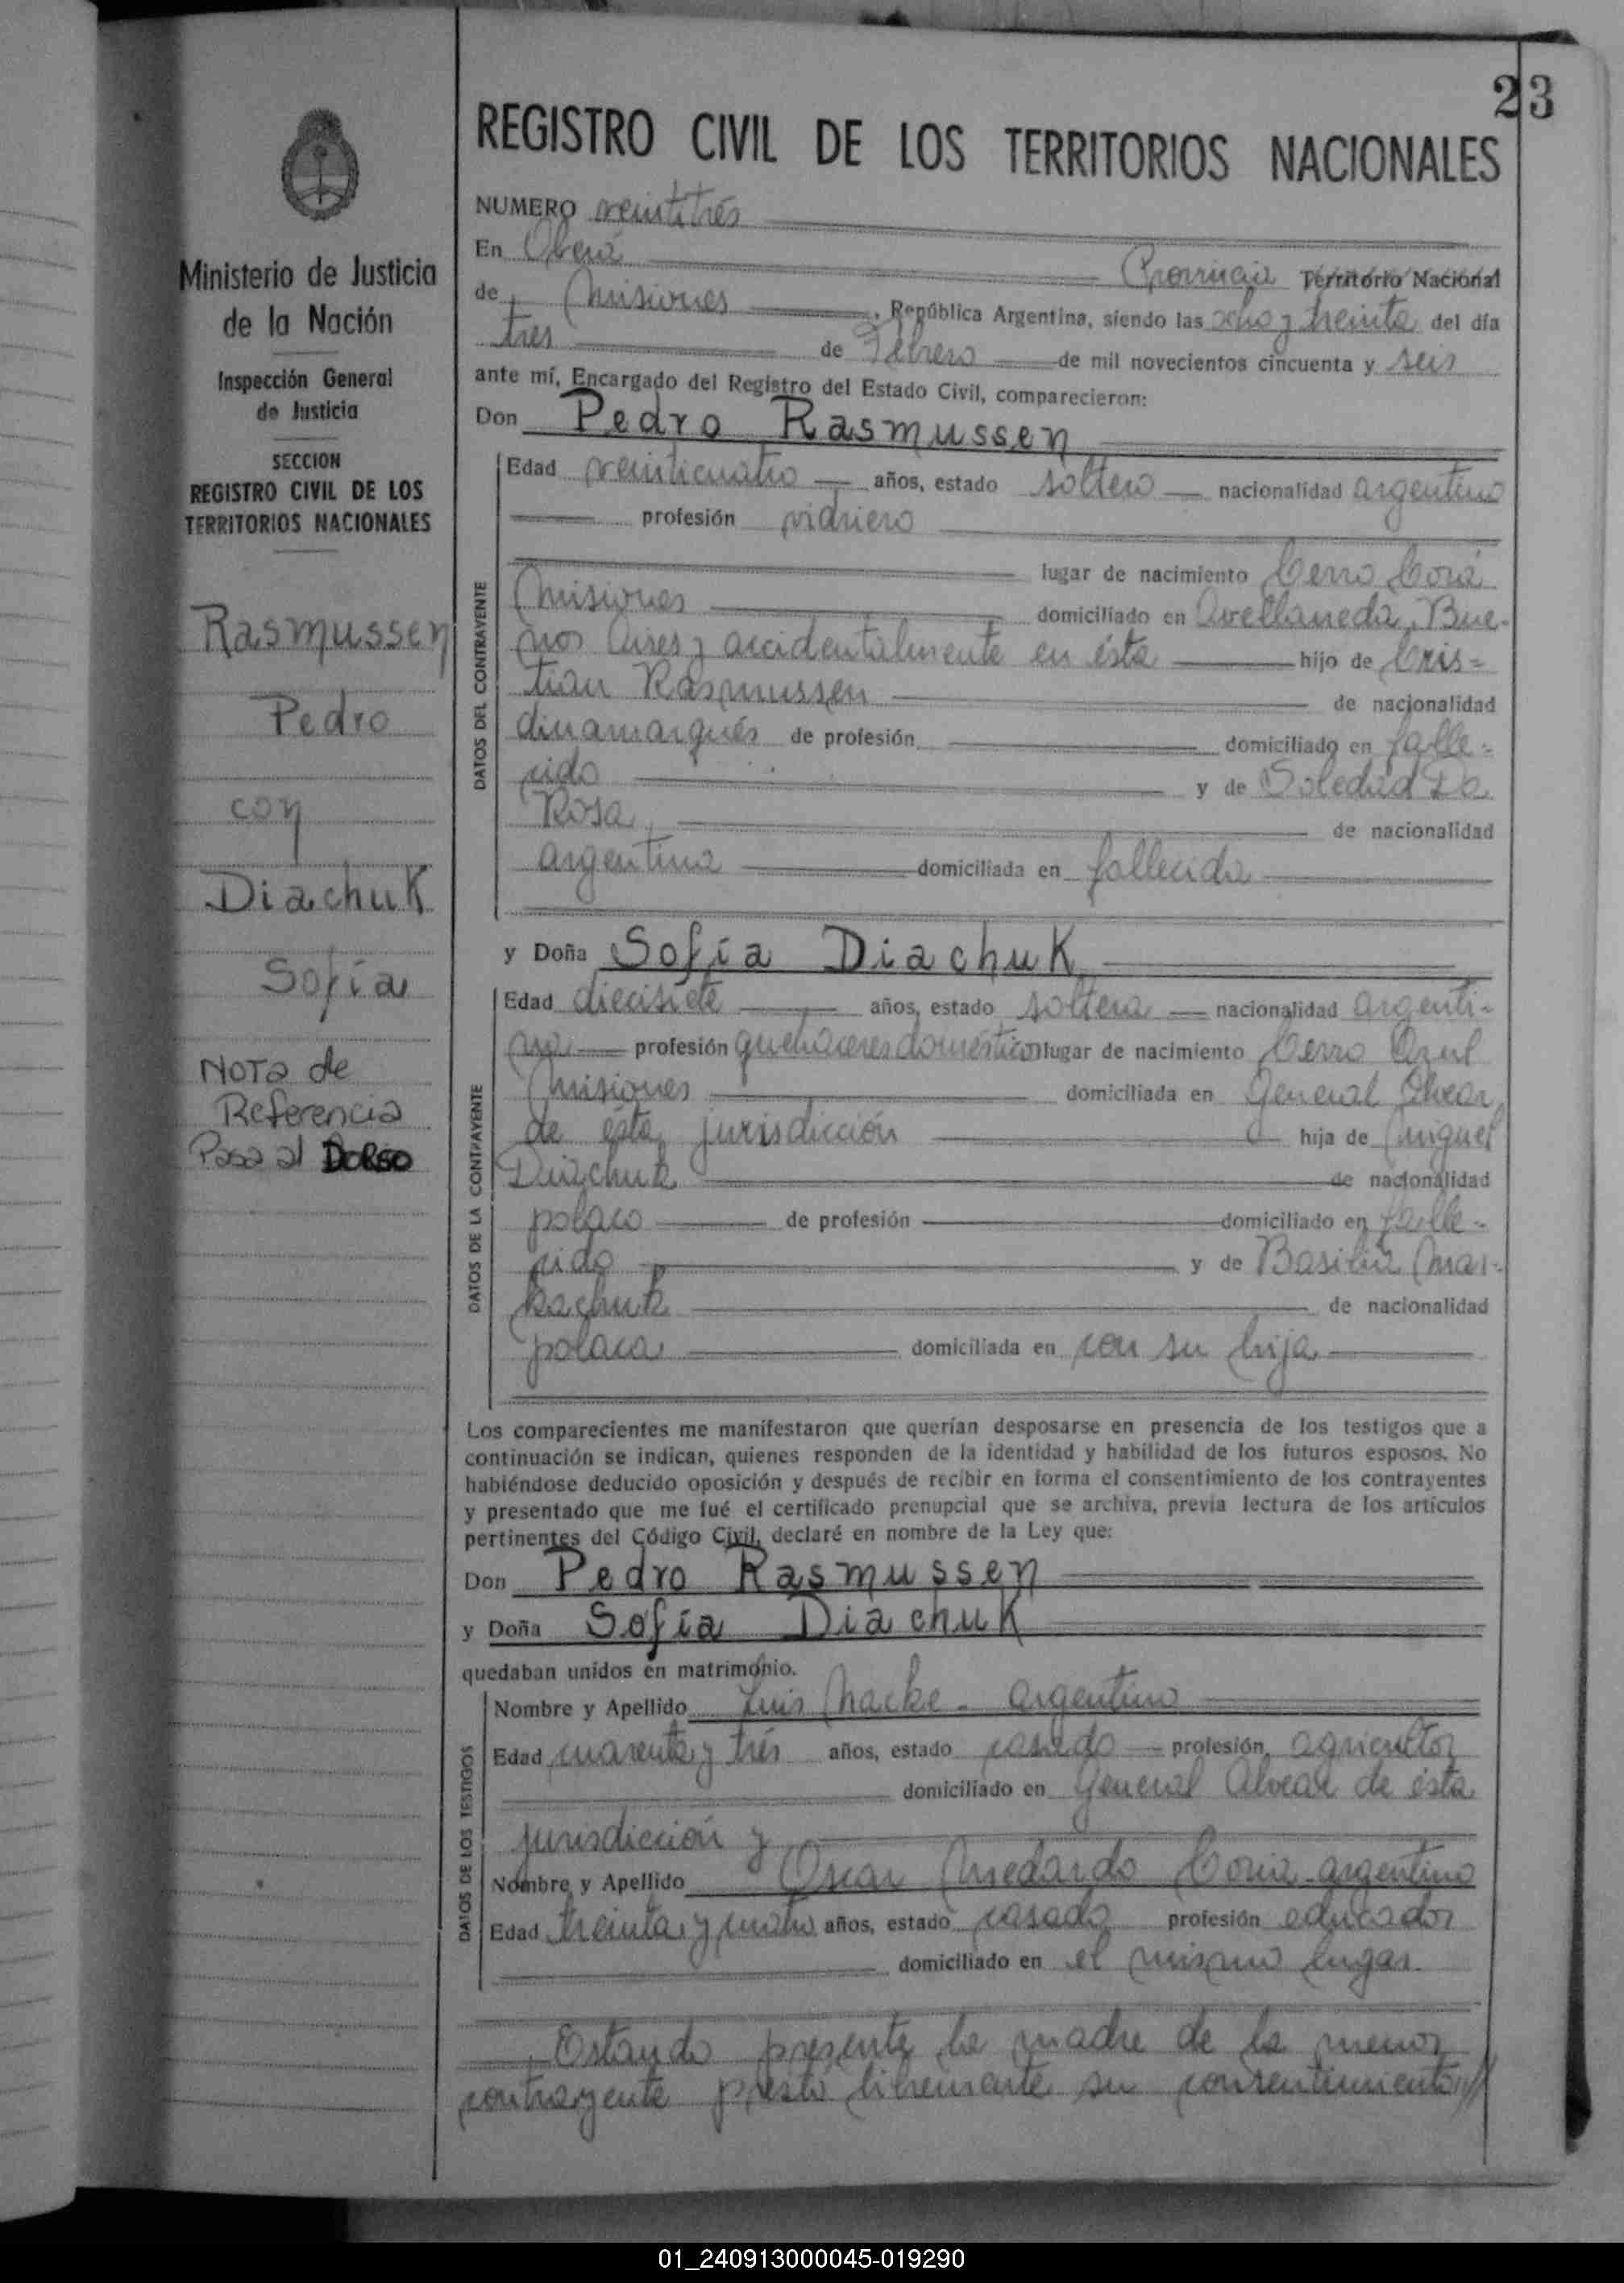 23
REGISTRO CIVIL DE LOS TERRITORIOS NACIONALES
Ministerio de Justicia
de la Nación
Inspección General
de Justicia
SECCION
REGISTRO CIVIL DE LOS
TERRITORIOS NACIONALES
Rasmussen
Pedro
con
Diachuk
Sofía
Nota de
Referencia
Pasa al Dorso
NUMERO veintitrés
En Oberá Provincia Territorio Nacional
de Misiones, República Argentina, siendo las ocho y treinta del día
tres de Febrero de mil novecientos cincuenta y seis
ante mí, Encargado del Registro del Estado Civil, comparecieron:
Don Pedro Rasmussen
DATOS DEL CONTRAYENTE
Edad veinticuatro años, estado soltero nacionalidad argentino
profesión vidriero
lugar de nacimiento Cerro Corá
Misiones domiciliado en Avellaneda, Bue-
nos Aires y accidentalmente en ésta hijo de Cris=
tian Rasmussen de nacionalidad
dinamarqués de profesión domiciliado en falle=
cido y de Soledad Da
Rosa, de nacionalidad
argentina domiciliada en fallecida
y Doña Sofía Diachuk
DATOS DE LA CONTRAYENTE
Edad diecisiete años, estado soltera nacionalidad argenti-
na profesión quehaceres domésticos lugar de nacimiento Cerro Azul
Misiones domiciliada en General Alvear
de ésta jurisdicción hija de Miguel
Diachuk de nacionalidad
polaco de profesión domiciliado en falle-
cido y de Basilia Mar-
kachuk de nacionalidad
polaca domiciliada en con su hija
Los comparecientes me manifestaron que querían desposarse en presencia de los testigos que a
continuación se indican, quienes responden de la identidad y habilidad de los futuros esposos. No
habiéndose deducido oposición y después de recibir en forma el consentimiento de los contrayentes
y presentado que me fué el certificado prenupcial que se archiva, previa lectura de los artículos
pertinentes del Código Civil, declaré en nombre de la Ley que:
Don Pedro Rasmussen
y Doña Sofía Diachuk
quedaban unidos en matrimonio.
DATOS DE LOS TESTIGOS
Nombre y Apellido Luis Nacke - argentino
Edad cuarenta y trés años, estado casado profesión agricultor
domiciliado en General Alvear de ésta
jurisdicción y
Nombre y Apellido Oscar Medardo Coria - argentino
Edad treinta y cuatro años, estado casado profesión educador
domiciliado en el mismo lugar.
Estando presente la madre de la menor
contrayente prestó libremente su consentimiento//
01_240913000045-019290